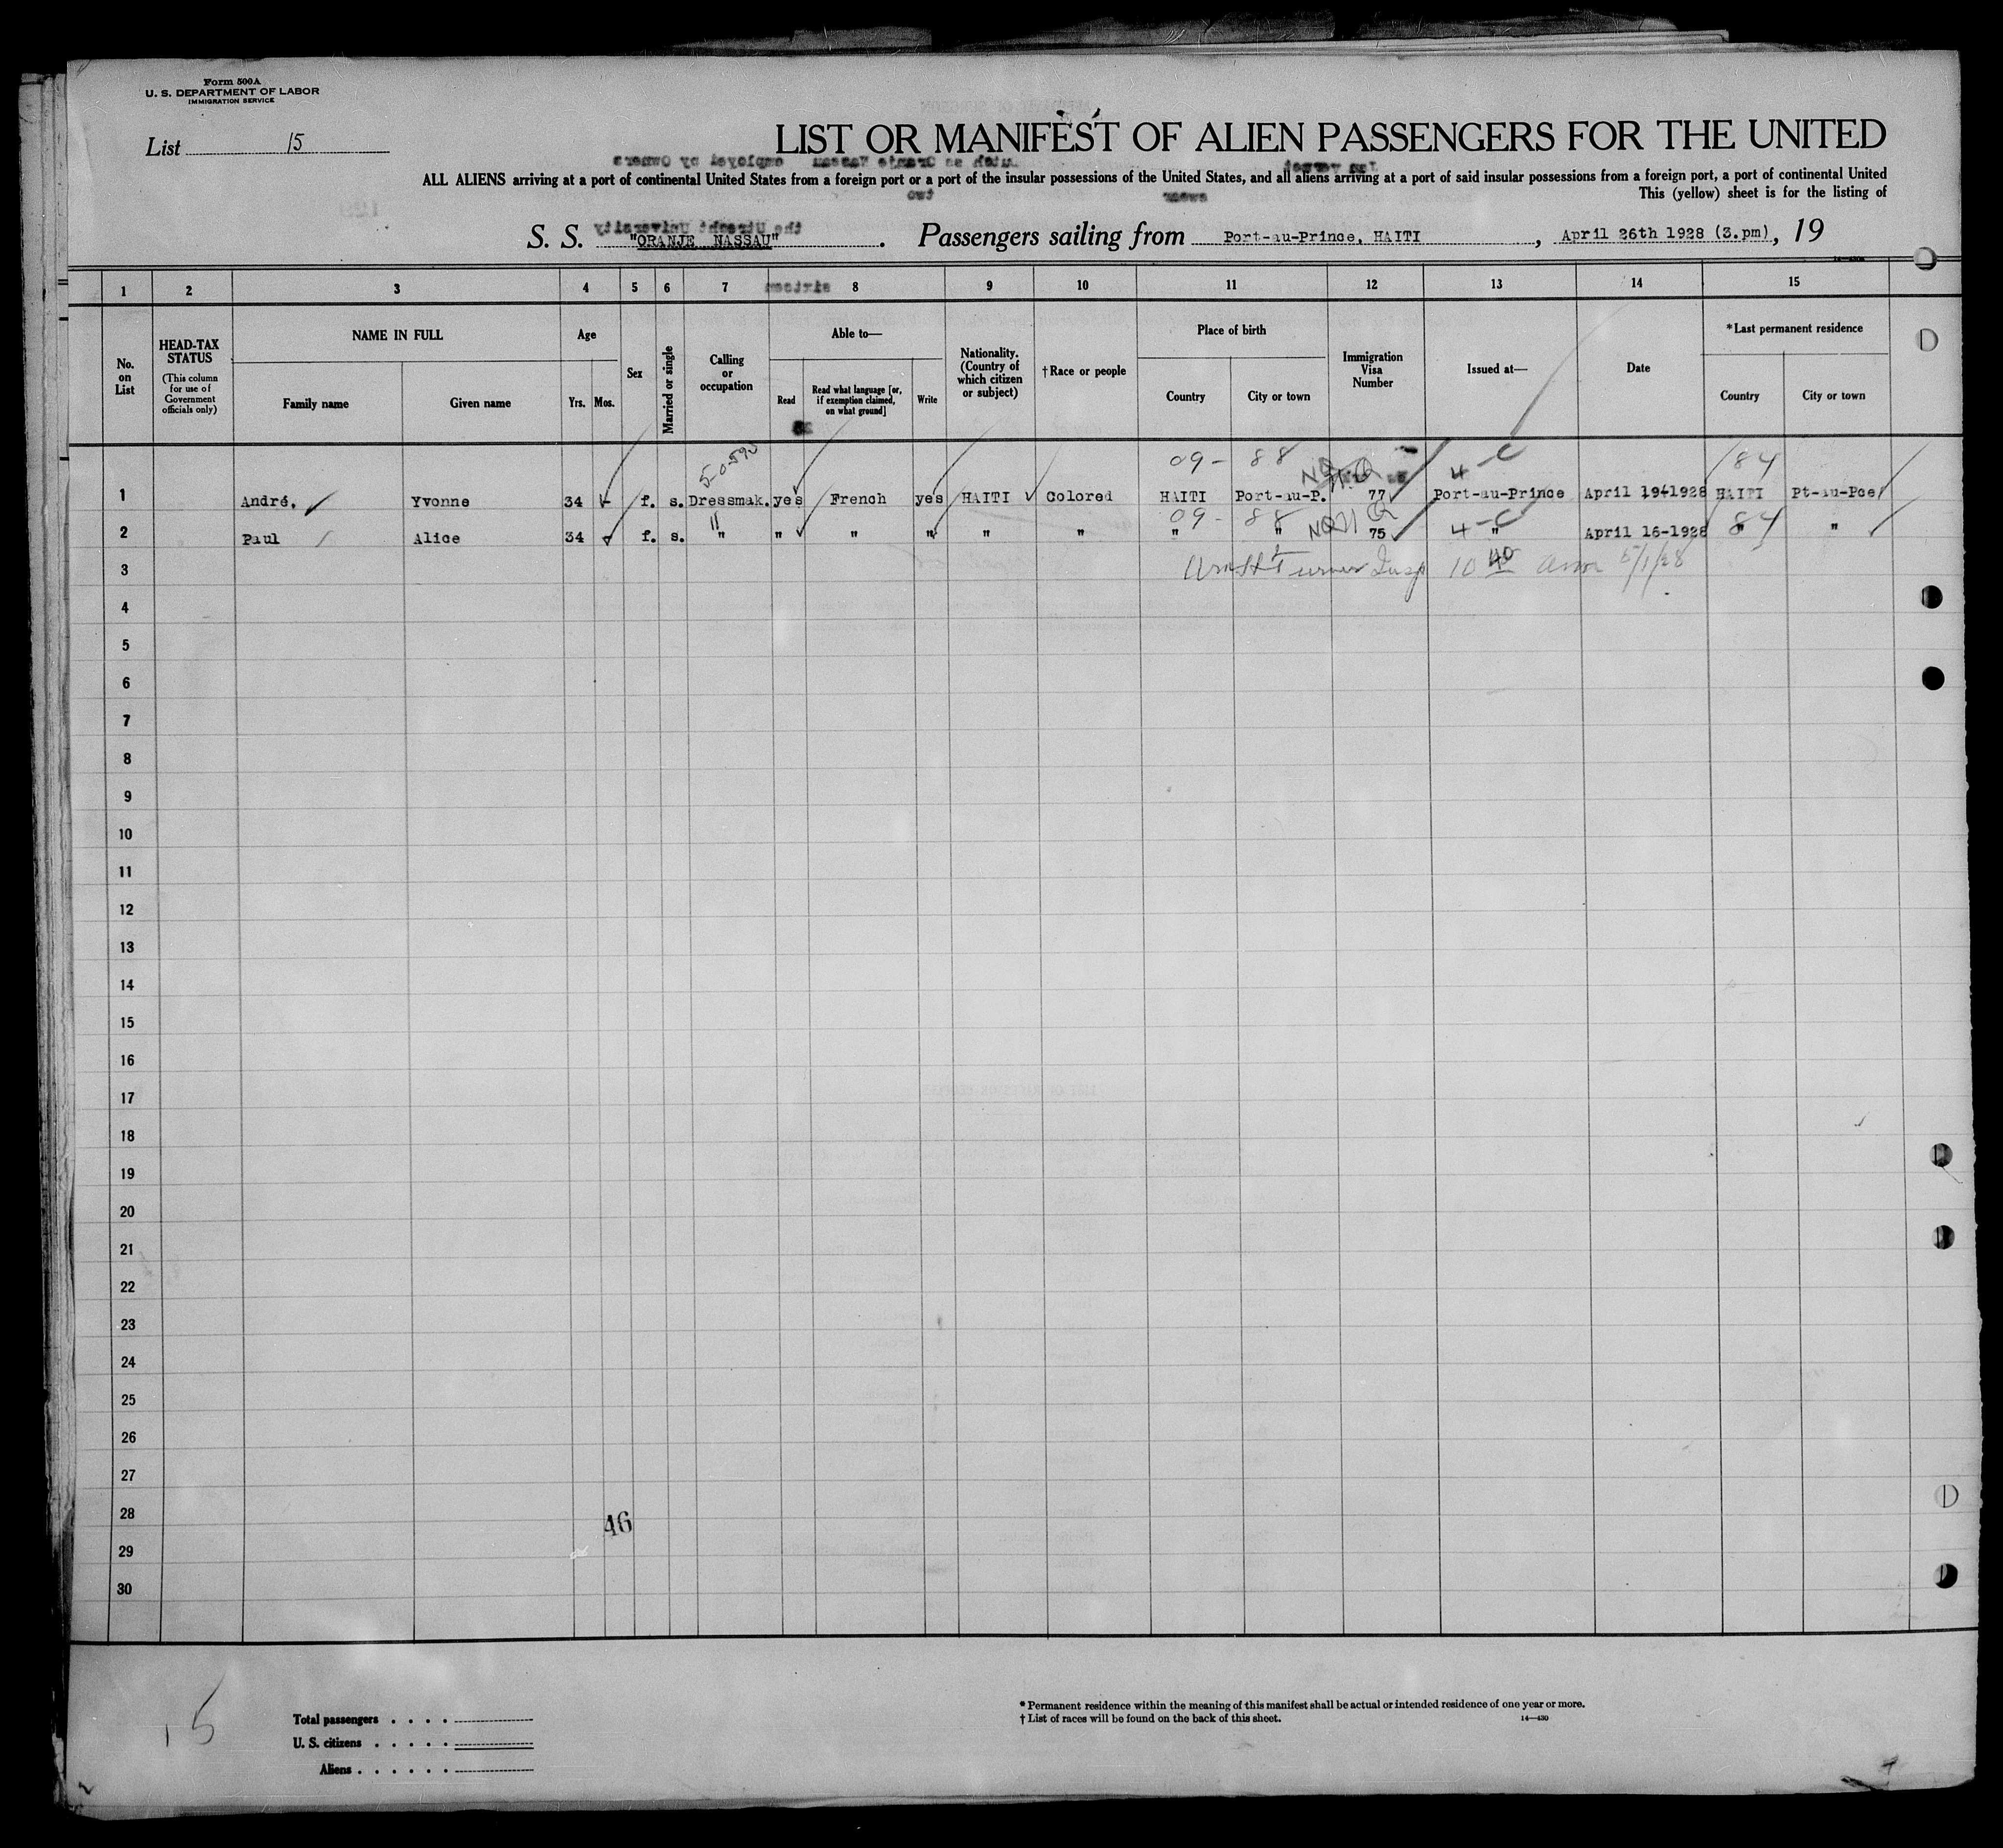 Form 500A
U. S. DEPARTMENT OF LABOR
IMMIGRATION SERVICE
List 15
LIST OR MANIFEST OF ALIEN PASSENGERS FOR THE UNITED
ALL ALIENS arriving at a port of continental United States from a foreign port or a port of the insular possessions of the United States, and all aliens arriving at a port of said insular possessions from a foreign port, a port of continental United
This (yellow) sheet is for the listing of
S. S. "ORANJE NASSAU". Passengers sailing from Port-au-Prince, HAITI, April 26th 1928 (3.pm), 19
1 2 3 4 5 6 7 8 9 10 11 12 13 14 15
No. on List
HEAD-TAX STATUS
(This column for use of Government officials only)
NAME IN FULL
Family name
Given name
Age
Yrs. Mos.
Sex
Married or single
Calling or occupation
Able to—
Read
Read what language [or, if exemption claimed, on what ground]
Write
Nationality. (Country of which citizen or subject)
†Race or people
Place of birth
Country
City or town
Immigration Visa Number
Issued at—
Date
*Last permanent residence
Country
City or town
5-0-590 09- 88 NQ 4-C 84
1 André, Yvonne 34 - f. s. Dressmak. yes French yes HAITI Colored HAITI Port-au-P. 77 Port-au-Prince April 19-1928 HAITI Pt-au-Pce
" 09- 88 NQ 4-C 84
2 Paul Alice 34 f. s. " " " " " " " " 75 " April 16-1928 " "
3 Turner Insp 10 40 am 5/1/28
4
5
6
7
8
9
10
11
12
13
14
15
16
17
18
19
20
21
22
23
24
25
26
27
28
46
29
30
15
Total passengers
U. S. citizens
Aliens
* Permanent residence within the meaning of this manifest shall be actual or intended residence of one year or more.
† List of races will be found on the back of this sheet.
14—430